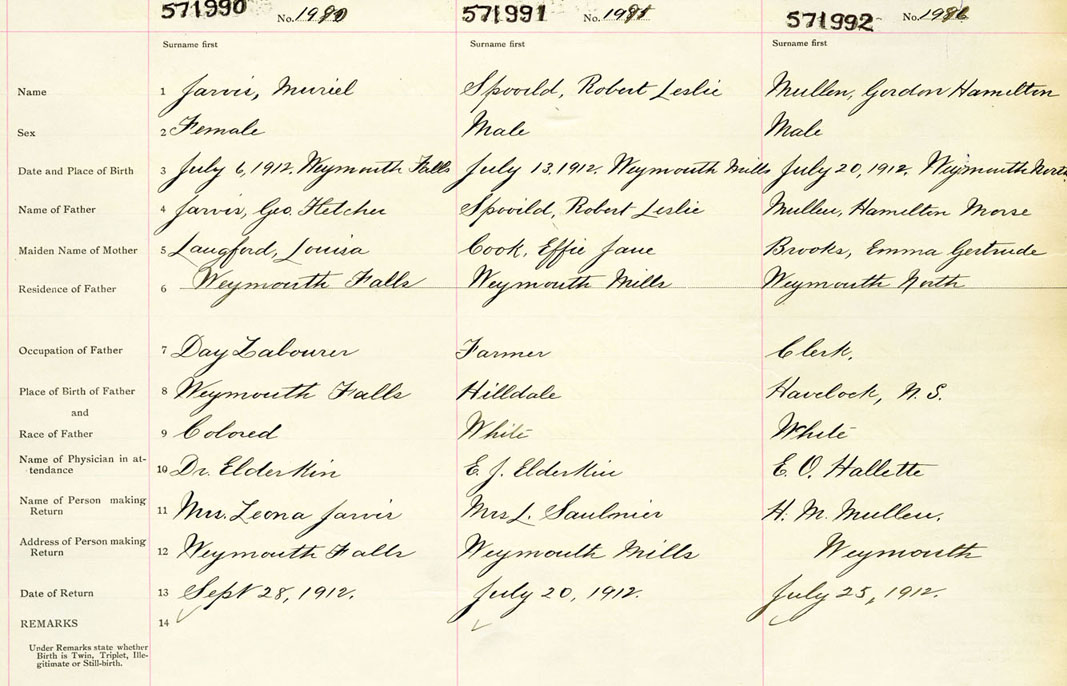 571990 No. 1980 571991 No. 1985 571992 No. 1986
Surname first Surname first Surname first
Name 1 Jarvis, Muriel Spovild, Robert Leslie Mullen, Gordon Hamilton
Sex 2 Female Male Male
Date and Place of Birth 3 July 6, 1912. Weymouth Falls July 13, 1912. Weymouth Mills July 20, 1912. Weymouth North
Name of Father 4 Jarvis, Geo. Fletcher Spovild, Robert Leslie Mullen, Hamilton Morse
Maiden Name of Mother 5 Langford, Louisa Cook, Effie Jane Brooks, Emma Gertrude
Residence of Father 6 Weymouth Falls Weymouth Mills Weymouth North
Occupation of Father 7 Day Labourer Farmer Clerk.
Place of Birth of Father 8 Weymouth Falls Hilldale Havelock, N.S.
and
Race of Father 9 Colored White White
Name of Physician in at-
tendance 10 Dr. Elderkin E. J. Elderkin E. O. Hallette
Name of Person making
Return 11 Mrs. Leona Jarvis Mrs L. Saulnier H. M. Mullen.
Address of Person making
Return 12 Weymouth Falls Weymouth Mills Weymouth
Date of Return 13 Sept 28, 1912. July 20, 1912. July 25, 1912.
REMARKS 14
Under Remarks state whether
Birth is Twin, Triplet, Ille-
gitimate or Still-birth.